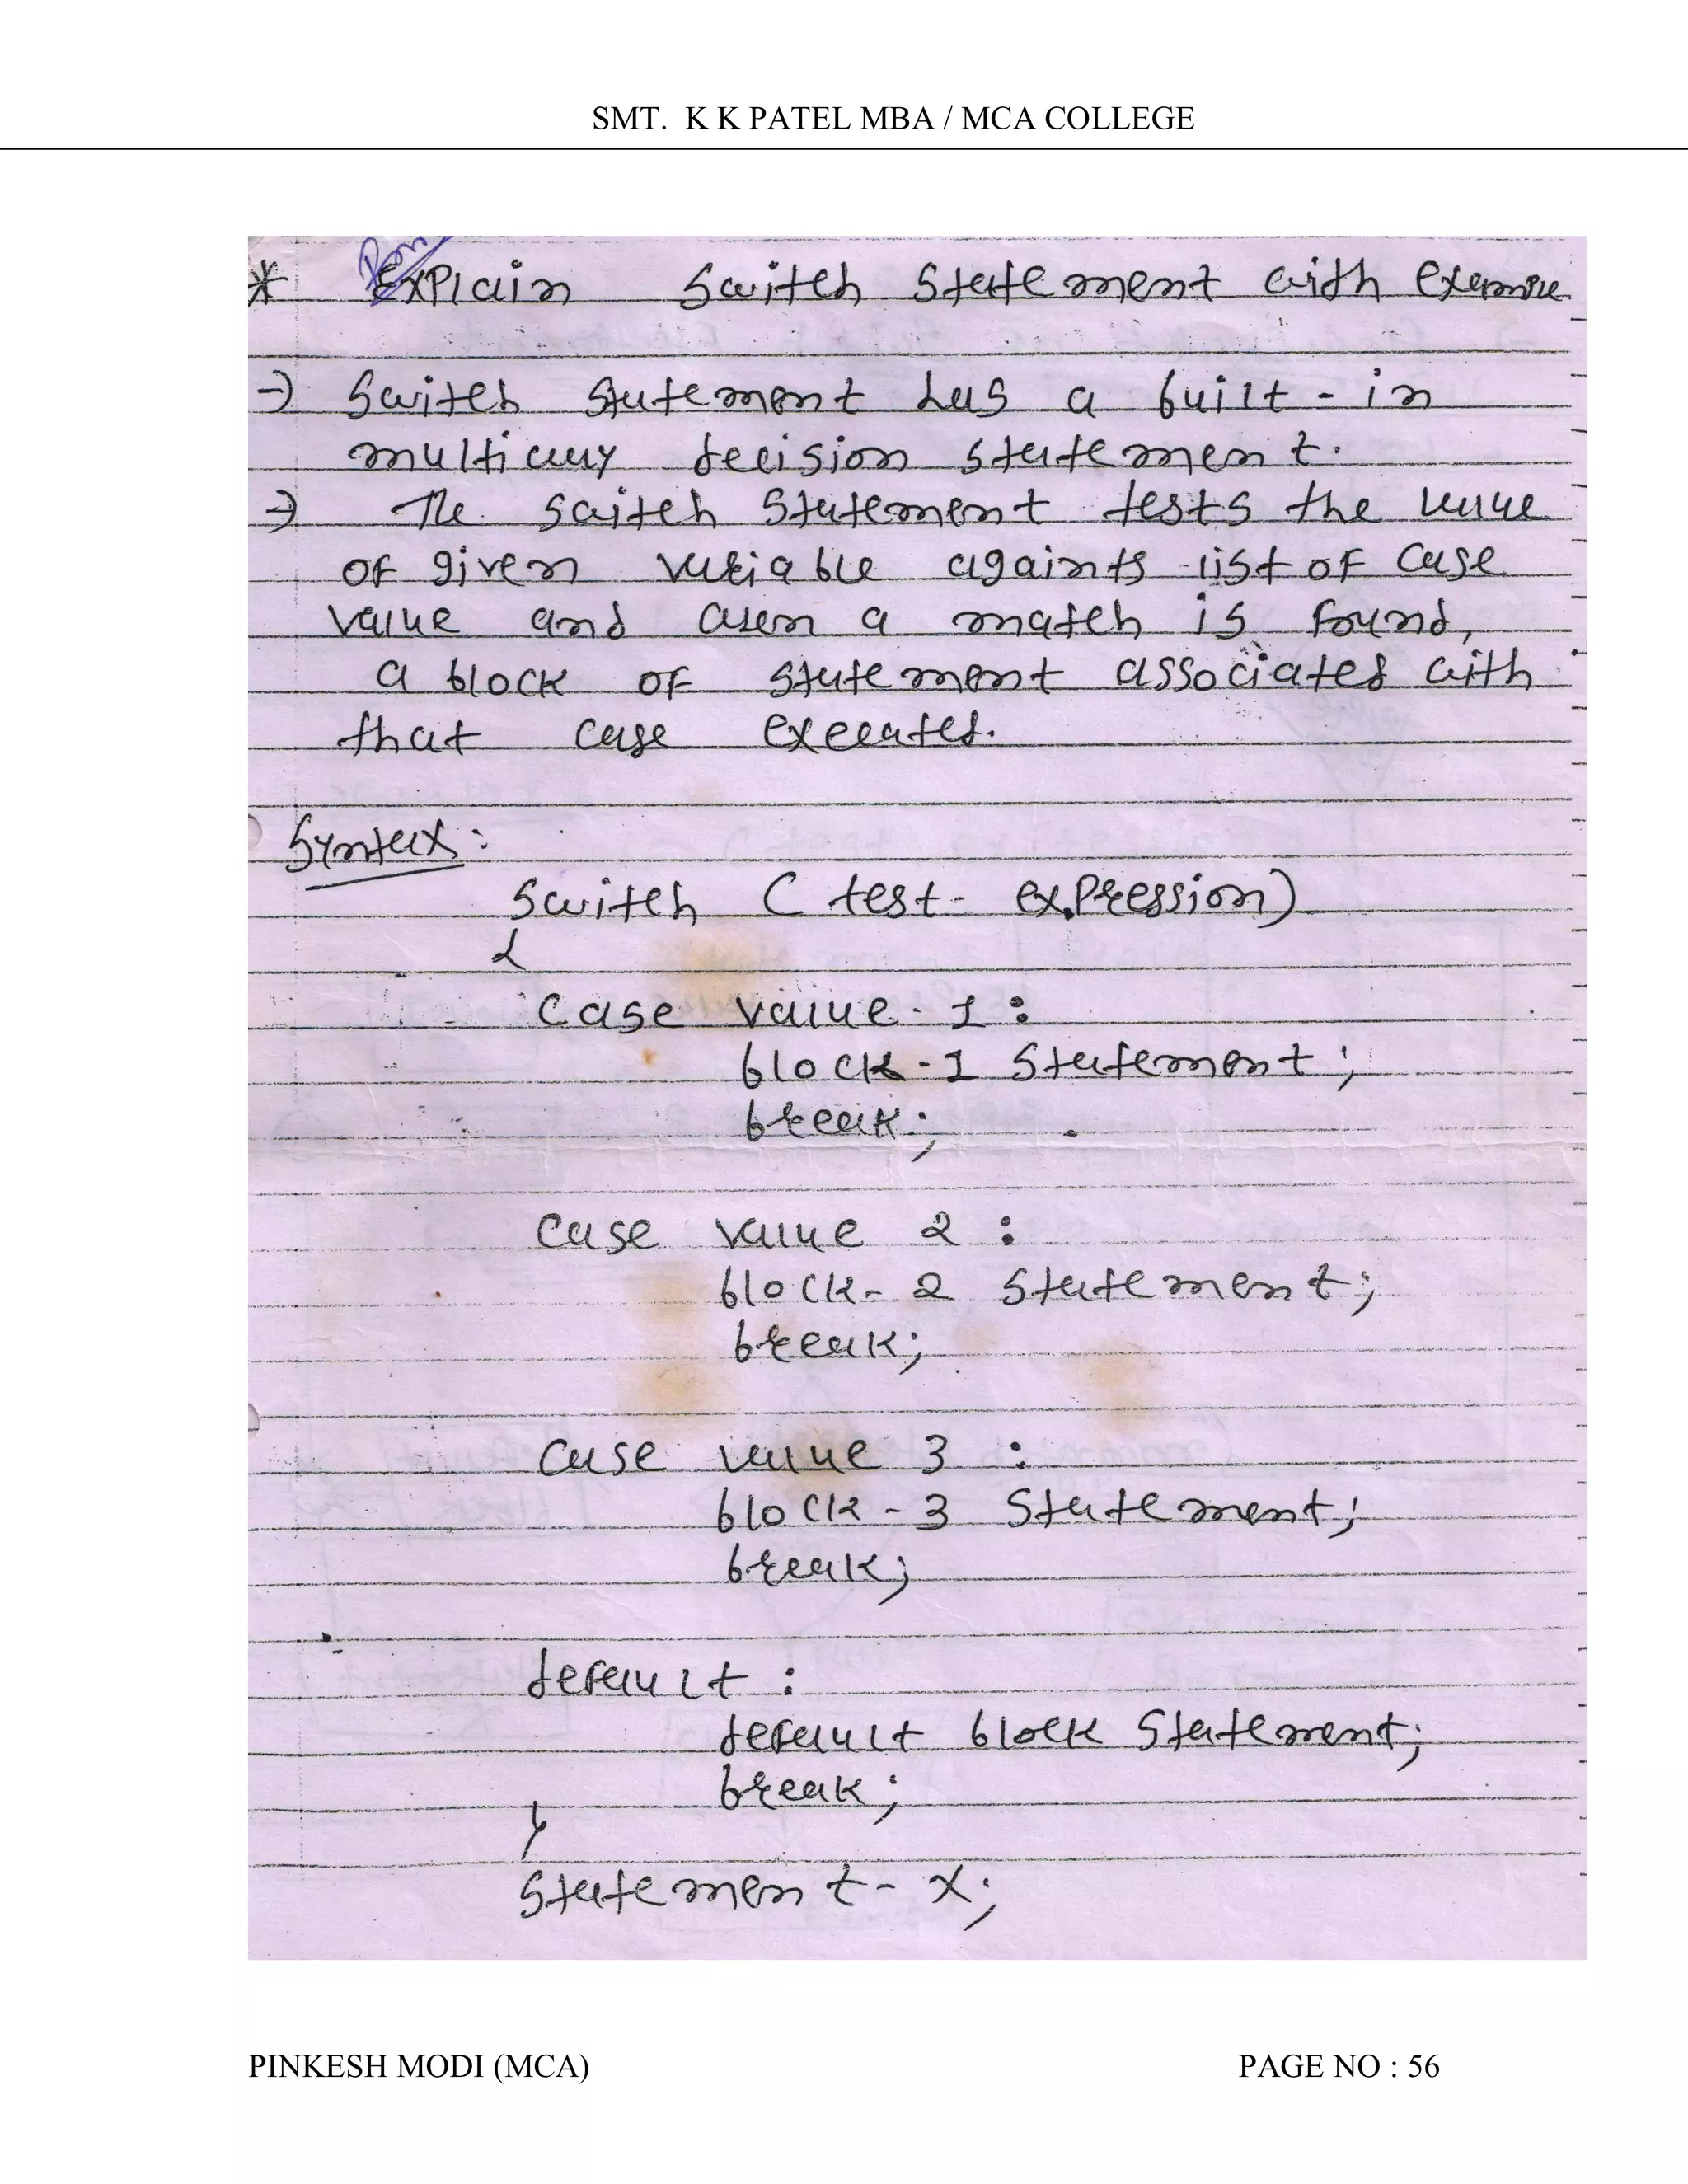 SMT. K K PATEL MBA / MCA COLLEGE
* Explain Switch Statement with Example
→ Switch statement has a built-in
multiway decision statement.
→ The switch statement tests the value
of given variable againts list of case
value and when a match is found,
a block of statement associated with
that case executed.
Syntax:
Switch ( test- expression)
{
Case value-1 :
block-1 Statement;
break;
Case value 2 :
block-2 Statement;
break;
Case value 3 :
block-3 Statement;
break;
default :
default block Statement;
break;
}
Statement-x;
PINKESH MODI (MCA) PAGE NO : 56